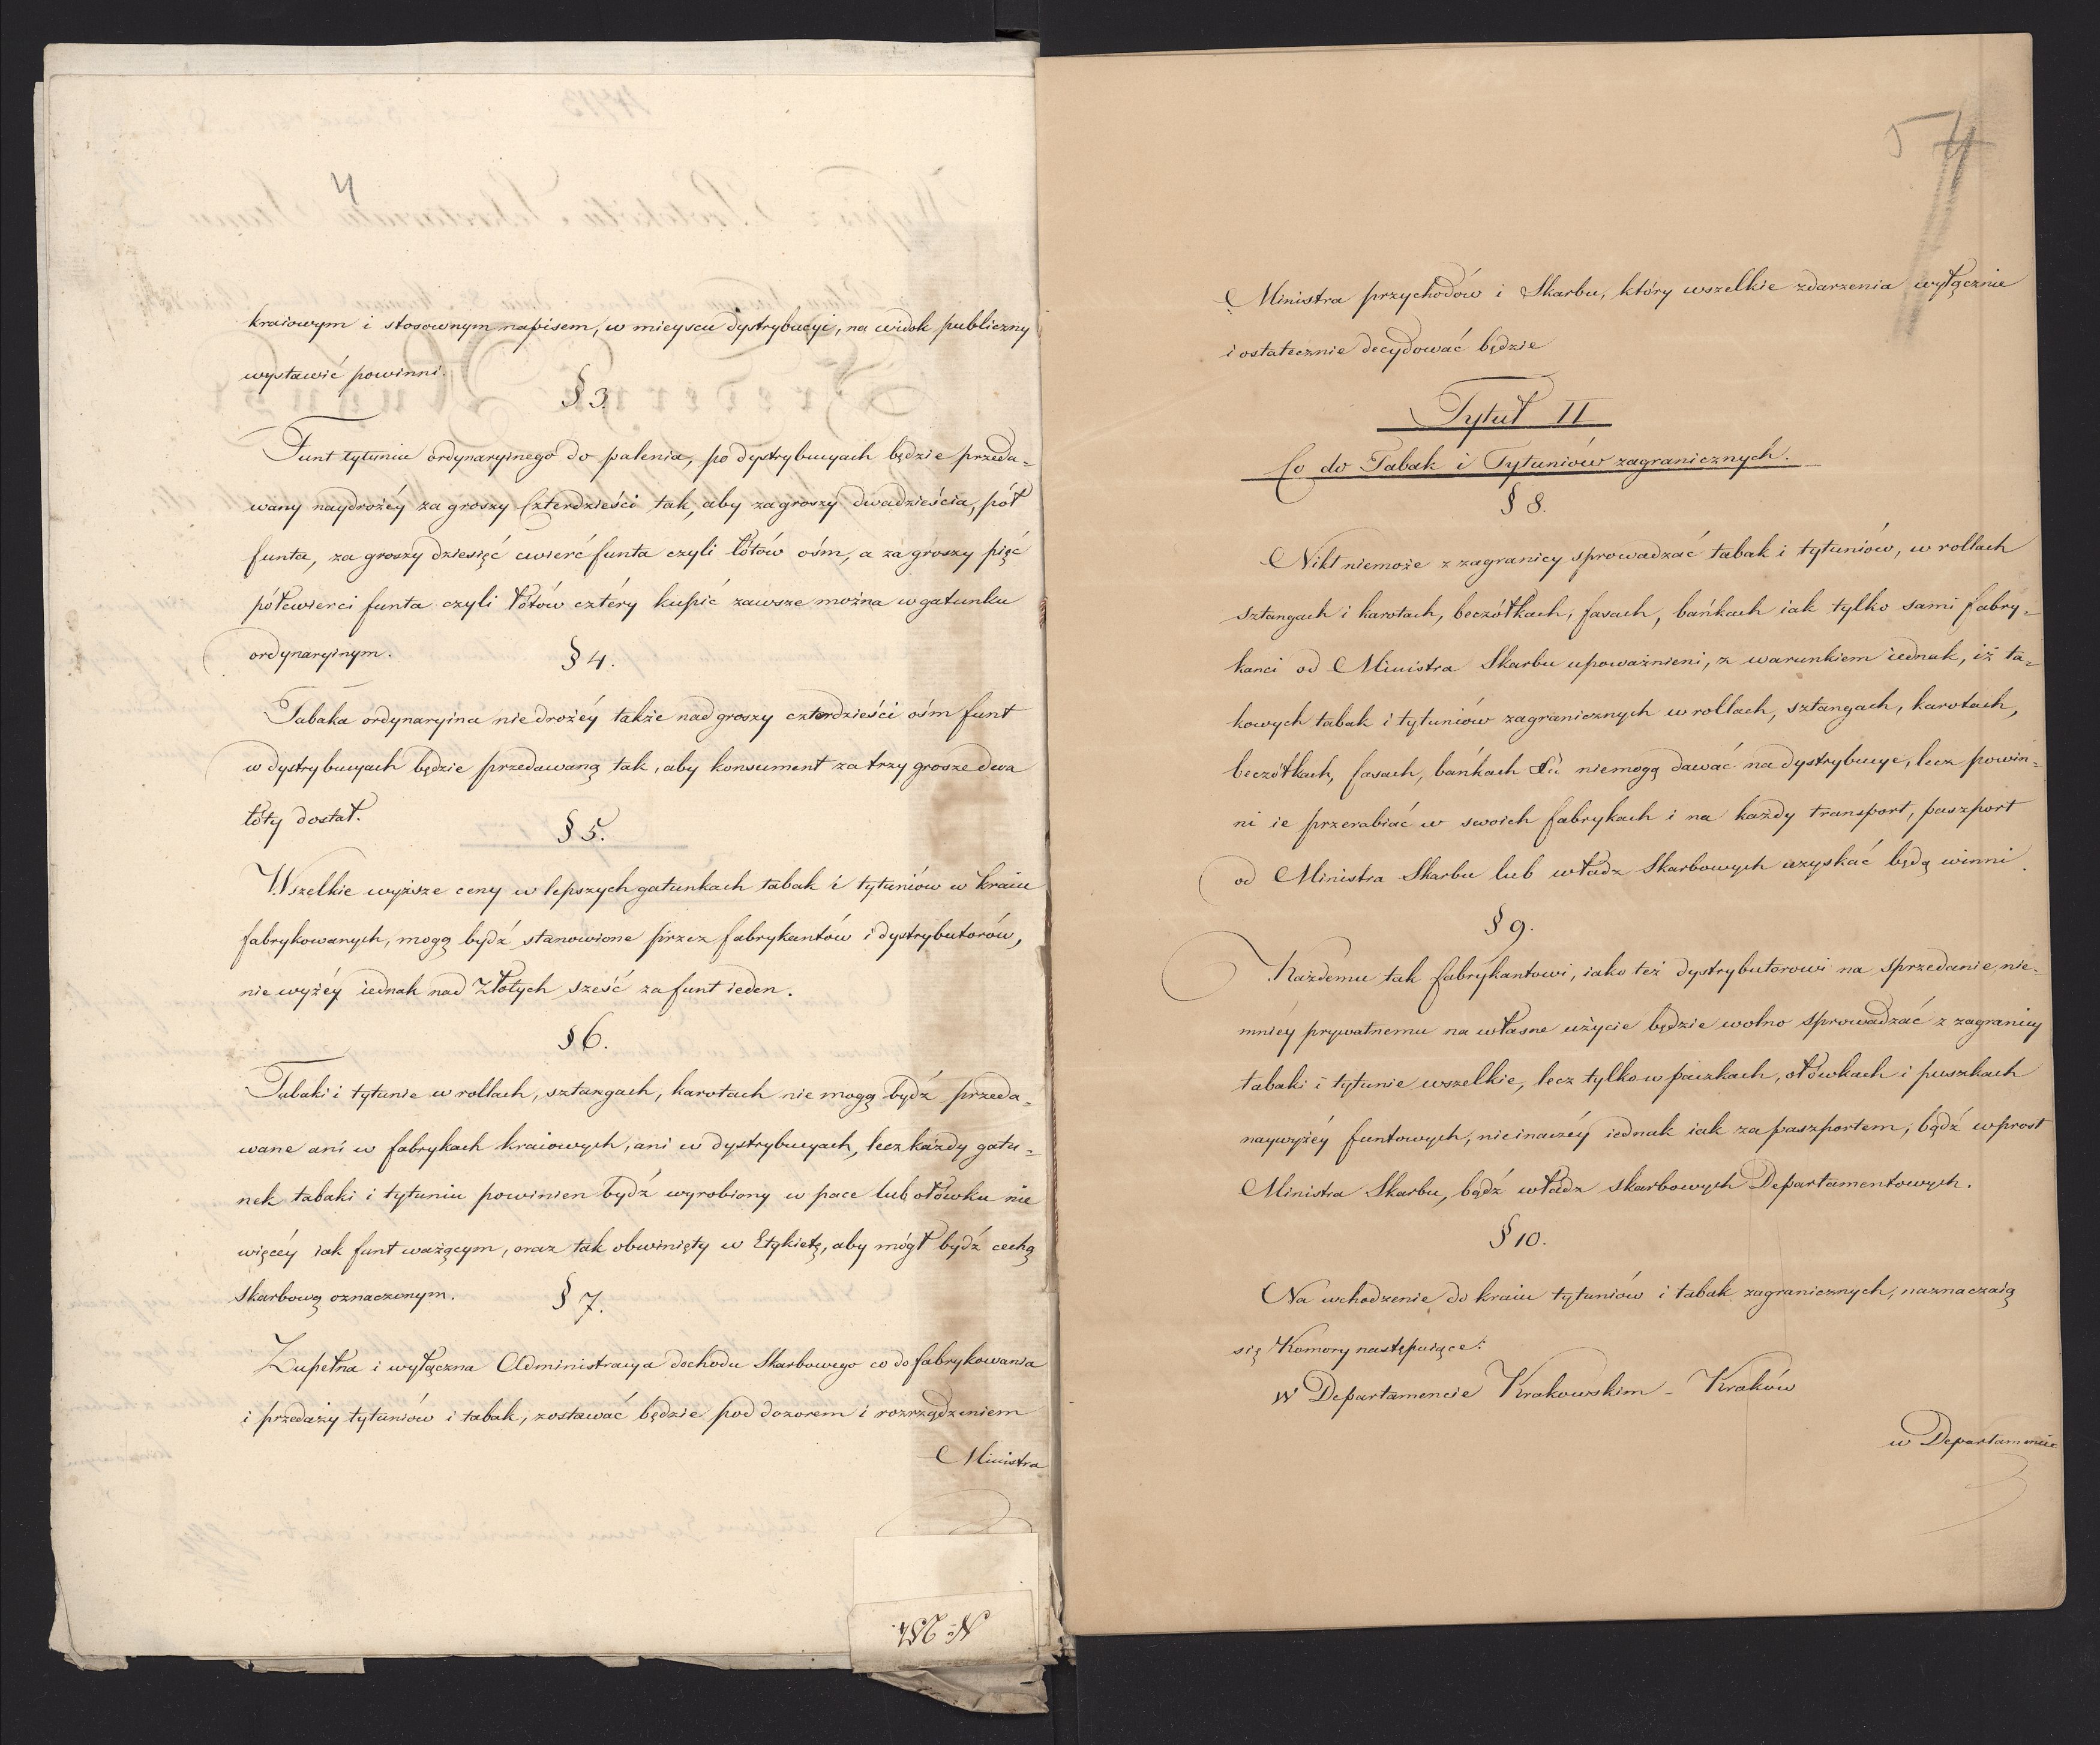 4
kraiowym i stosownym napisem, w mieyscu dystrybucyi, na widok publiczny
wystawić powinni.
§ 3.
Funt tytuniu ordynaryinego do palenia, po dystrybucyach będzie przeda-
wany naydrożéy za groszy Czterdzieści tak, aby za groszy dwadzieścia, pół
funta, za groszy dziesięć cwierć funta czyli łótów ośm, a za groszy pięć
półcwierci funta czyli łótów cztéry kupić zawsze można w gatunku
ordynaryinym.
§ 4.
Tabaka ordynaryina niedrożéy także nad groszy czterdzieści ośm funt
w dystrybucyach będzie przedawaną tak, aby konsument za trzy grosze dwa
łóty dostał.
§ 5.
Wszelkie wyższe ceny w lepszych gatunkach tabak i tytuniów w kraiu
fabrykowanych, mogą bydź stanowione przez fabrykantów i dystrybutorów,
nie wyżéy iednak nad Złotych sześć za funt ieden.
§ 6.
Tabaki i tytunie w rollach, sztangach, karotach nie mogą bydź przeda-
wane ani w fabrykach kraiowych, ani w dystrybucyach, lecz każdy gatu-
nek tabaki i tytuniu powinien bydź wyrobiony w pace lub ołówku nie
więcéy iak funt ważącym, oraz tak obwinięty w Etykietę, aby mógł bydź cechą
skarbową oznaczonym.
§ 7.
Zupełna i wyłączna Administracya dochodu Skarbowego co do fabrykowania
i przedaży tytuniów i tabak, zostawać będzie pod dozorem i rozrządzeniem
Ministra
N° 252.
54
Ministra przychodów i Skarbu, który wszelkie zdarzenia wyłącznie
i ostatecznie decydować będzie
Tytuł II
Co do Tabak i Tytuniów zagranicznych.
§ 8.
Nikt niemoże z zagranicy sprowadzać tabak i tytuniów, w rollach
sztangach i karotach, beczółkach, fasach, bańkach iak tylko sami fabry-
kanci od Ministra Skarbu upoważnieni, z warunkiem iednak, iż ta-
kowych tabak i tytuniów zagranicznych w rollach, sztangach, karotach,
beczółkach, fasach, bańkach niemogą dawać na dystrybucye, lecz powin-
ni ie przerabiać w swoich fabrykach i na każdy transport, paszport
od Ministra Skarbu lub władz Skarbowych uzyskać będą winni.
§ 9.
Każdemu tak fabrykantowi, iako też dystrybutorowi na sprzedanie, nie-
mniéy prywatnemu na własne użycie będzie wolno sprowadzać z zagranicy
tabaki i tytunie wszelkie, lecz tylko w paczkach, ołówkach i puszkach
naywyżéy funtowych, nieinaczéy iednak iak za paszportem, bądź wprost
Ministra Skarbu, bądź władz skarbowych Departamentowych.
§ 10.
Na wchodzenie do kraiu tytuniów i tabak zagranicznych, naznaczaią
się Komory następuiące:
W Departamencie Krakowskim - Kraków
w Departamencie